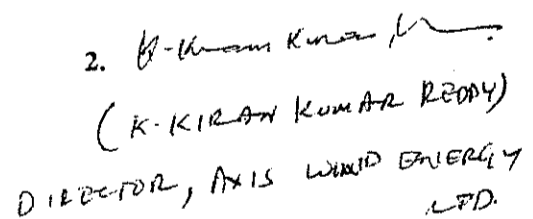 2. K-Kiran Kumar
(K-KIRAN KUMAR REDDY)
DIRECTOR, AXIS WIND ENERGY
LTD.